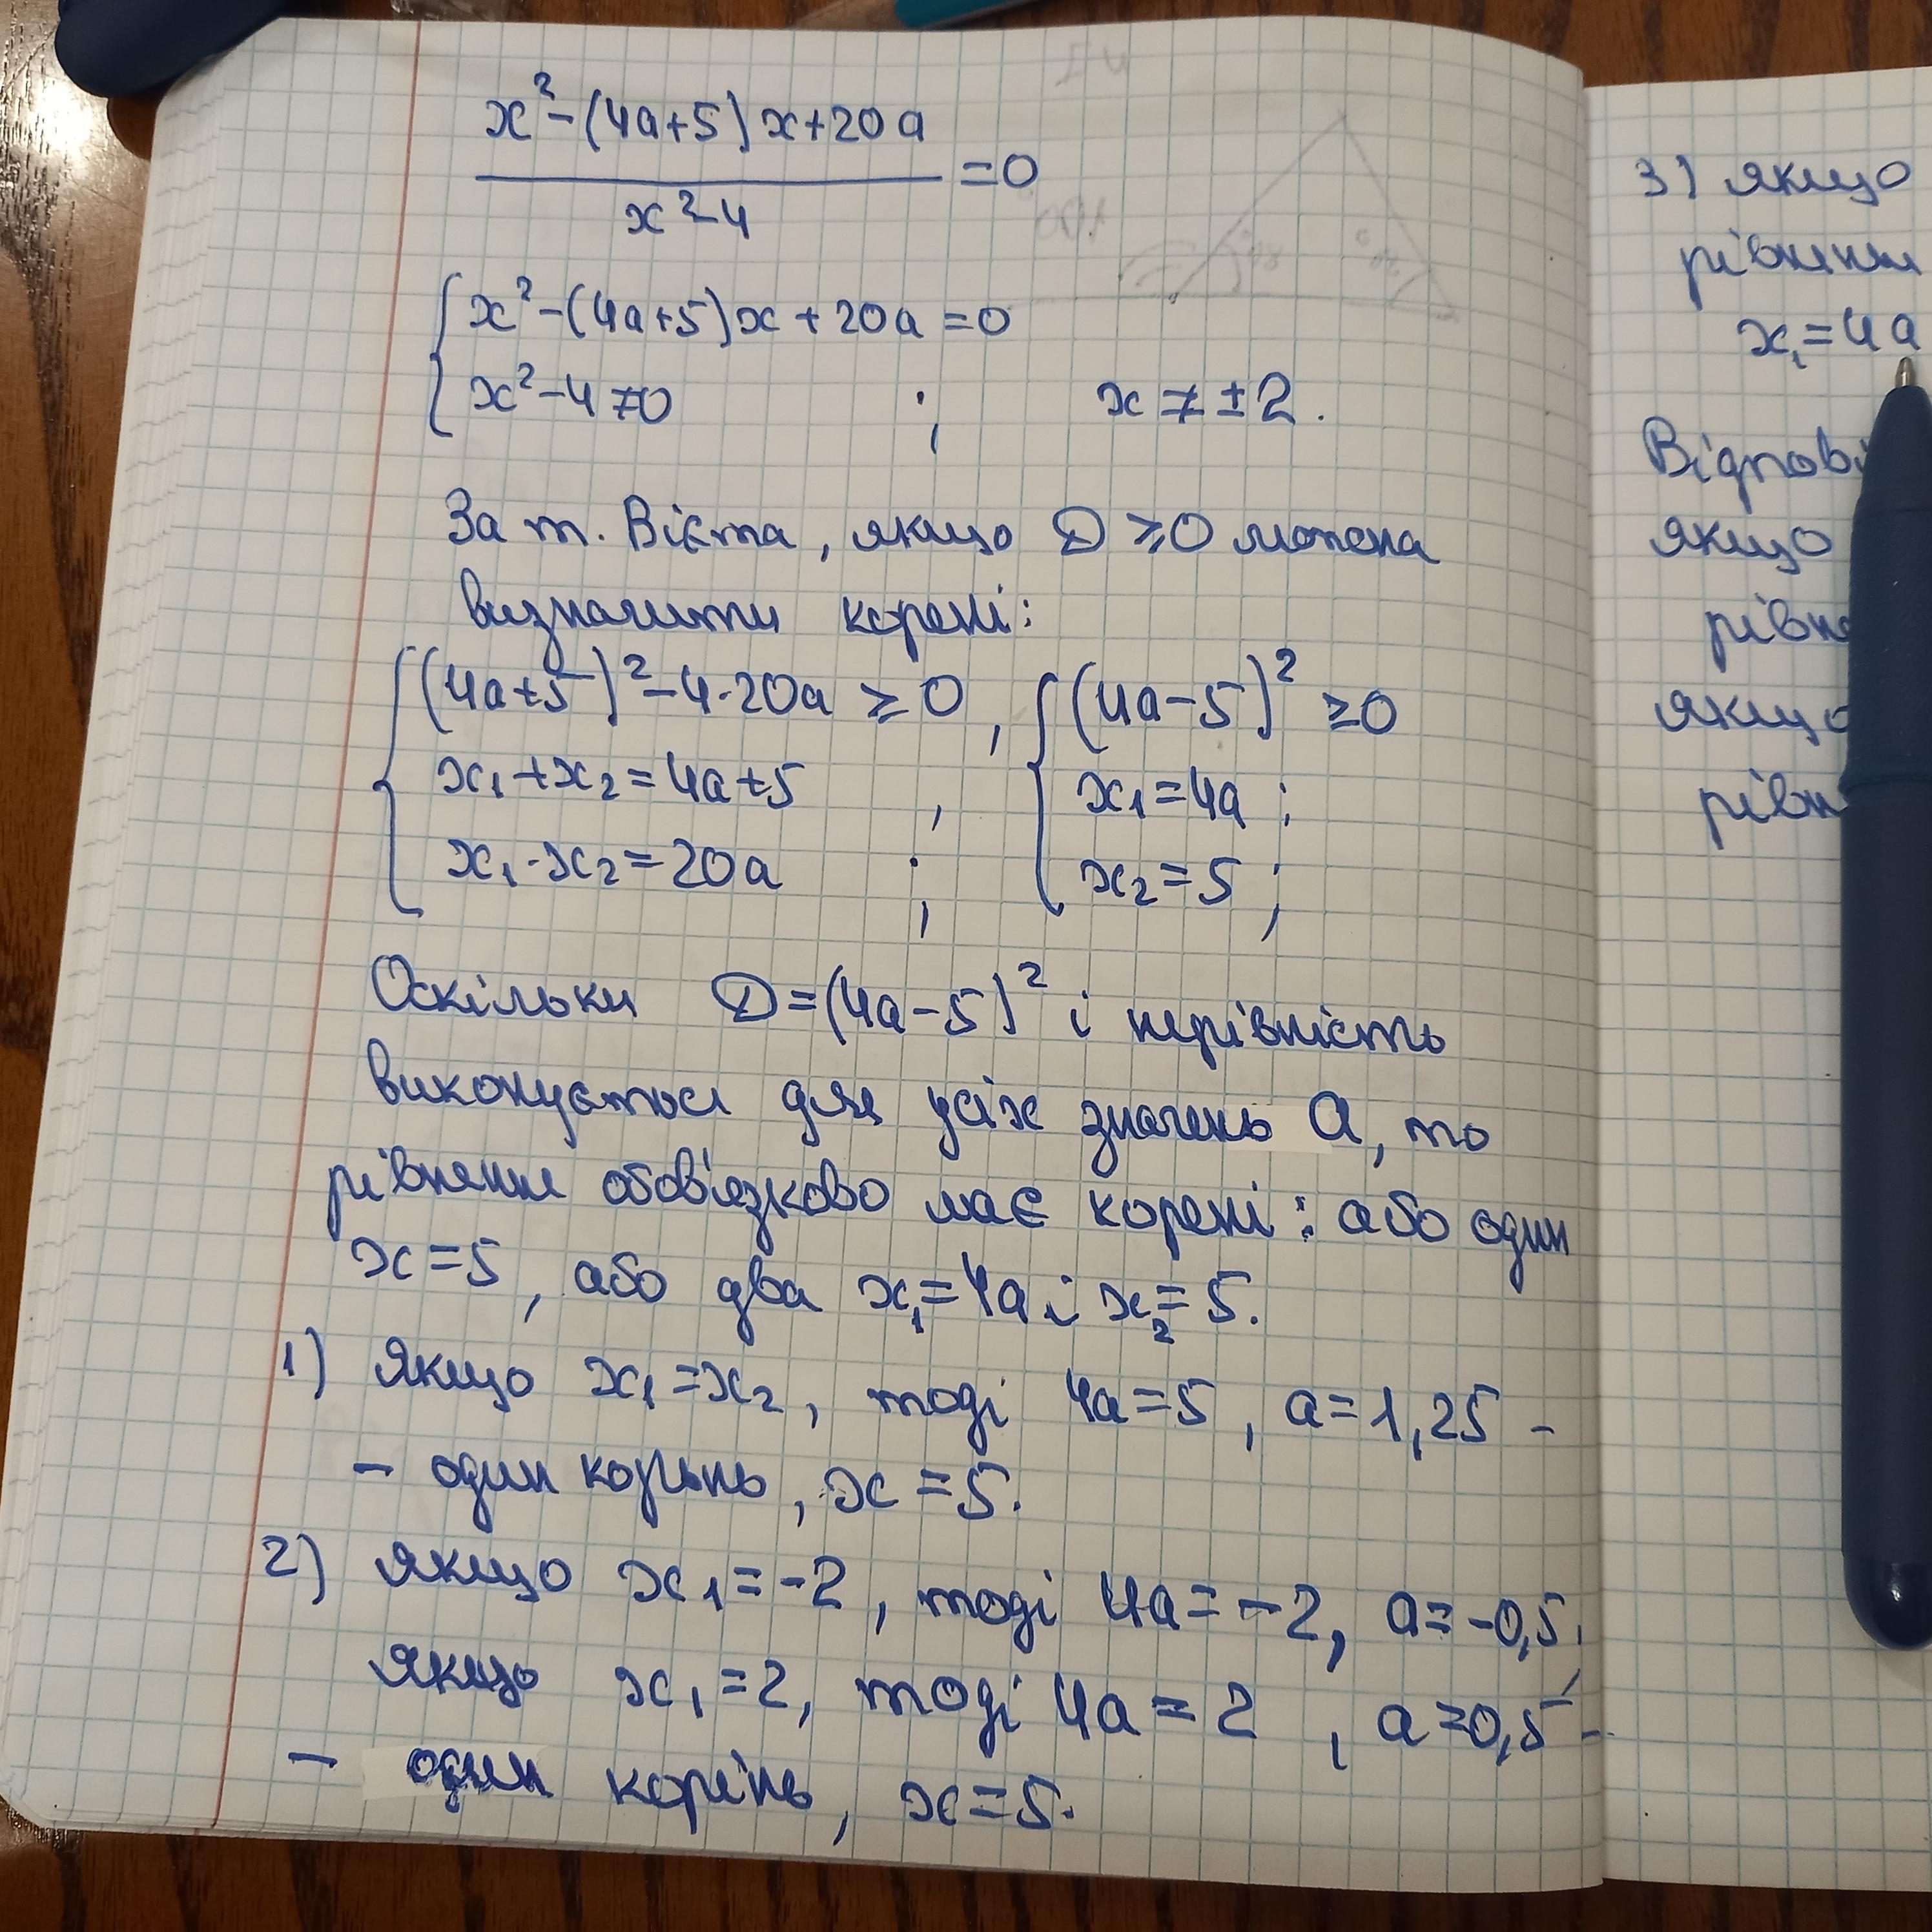 x² - (4a+5)x + 20a
x² - 4
= 0
x² - (4a+5)x + 20a = 0
x² - 4 ≠ 0 ; x ≠ ±2.
За т. Вієта, якщо D ≥ 0 можна
визначити корені:
(4a+5)² - 4·20a ≥ 0 , (4a-5)² ≥ 0
x₁ + x₂ = 4a+5 , x₁ = 4a ;
x₁ · x₂ = 20a ; x₂ = 5 ;
Оскільки D = (4a-5)² і нерівність
виконується для усіх значень a, то
рівняння обов'язково має корені: або один
x = 5, або два x₁ = 4a і x₂ = 5.
1) Якщо x₁ = x₂, тоді 4a = 5, a = 1,25 -
- один корінь, x = 5.
2) якщо x₁ = -2, тоді 4a = -2, a = -0,5.
якщо x₁ = 2, тоді 4a = 2, a = 0,5 -
- один корінь, x = 5.
3) якщо
рівнян
x₁ = 4a
Відпові
якщо
рівн
якщо
рівн